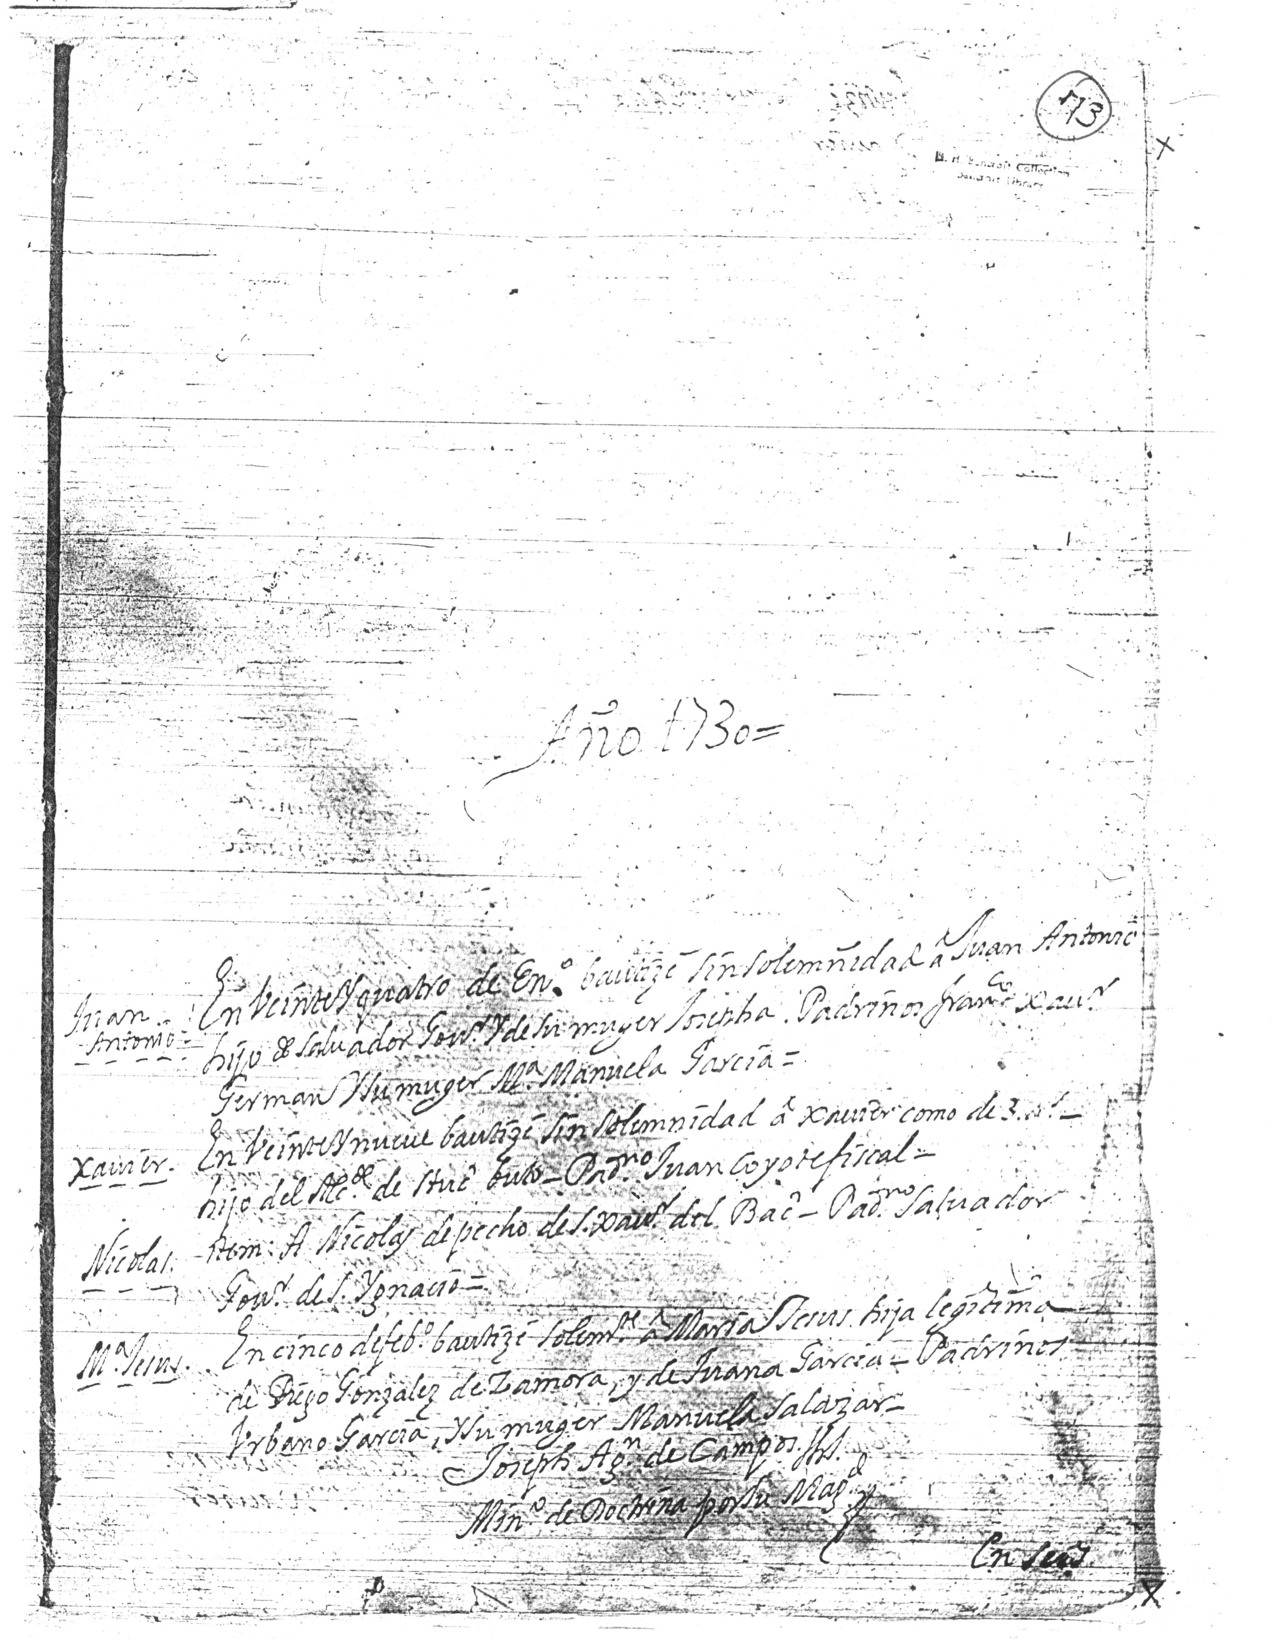 173
H. H. Bancroft Collection
Bancroft Library
Año 1730=
Juan
Antonio=
En Veinte Y quatro de En.º bautizé sin solemnidad â Juan Antonio
hijo de Salvador Gov.r Y de su muger Josepha. Padrinos Fran.co Xav.r
German Y su muger M.a Manuela Garcia=
Xavier.
En Veinte Y nueve bautizé sin solemnidad â Xavier como de 3. a.s
hijo del Alc.de de Pad.no Juan Coyote fiscal=
Nicolas.
Item: A Nicolas de pecho de S. Xav.r del Bac– Pad.no Salvador
Gov.r de S. Ygnacio=
M.a Jesus.
En cinco de feb.º bautizé solem.te â Maria Jesus hija legitima
de Diego Gonzalez de Zamora, y de Juana Garcia– Padrinos
Vrbano Garcia, Y su muger Manuela Salazar–
Joseph Ag.n de Campos. JHS.
Min.º de Doctrina por su Mag.d
En seis